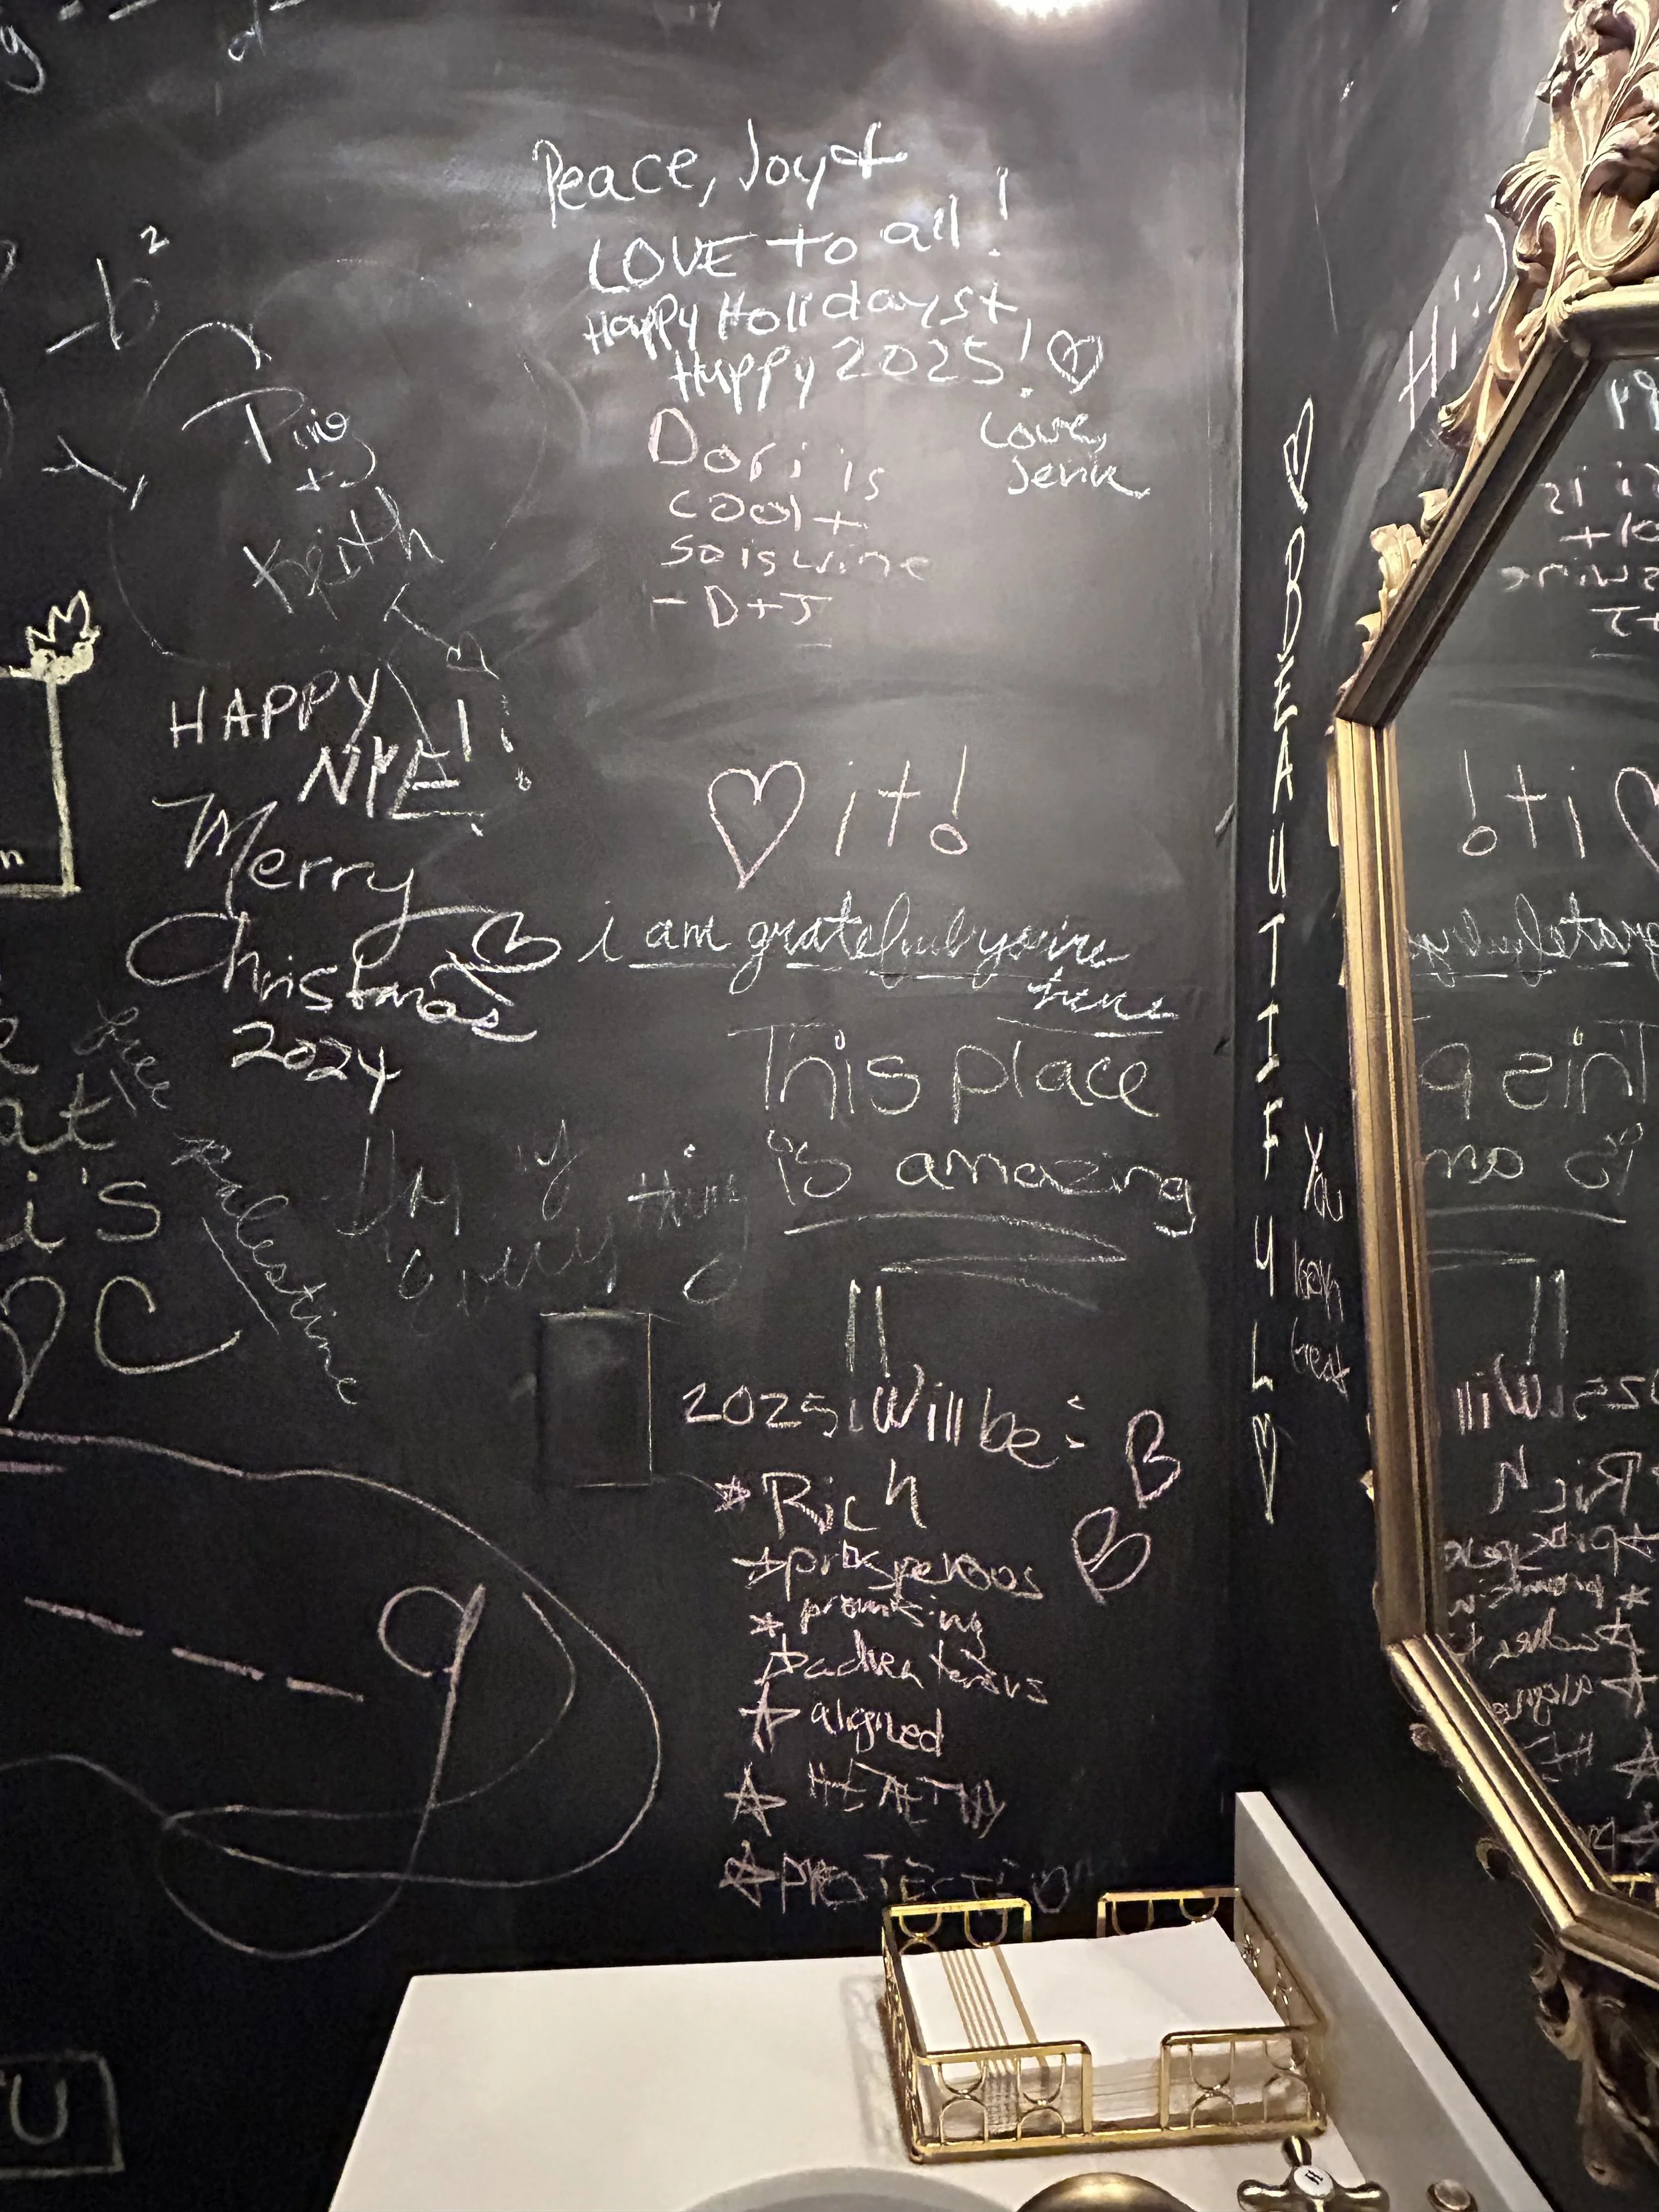 Peace, Joy +
LOVE to all!
Happy Holidays +
Happy 2025!
Love,
Dori is
cool +
so is wine
- D+J
-b²
+
Keith
HAPPY
NYE!!
Merry
Christmas
2024
♡ it!
i am grateful you're
here
This place
is amazing
free
Palestine
everything
at
i's
C
2025 Will be:
* Rich
* prosperous
* promising
* adventerous
* aligned
* HEALTHY
* PROTECTION
♡ BEAUTIFUL ♡
You
look
great
Hi :)
U
H